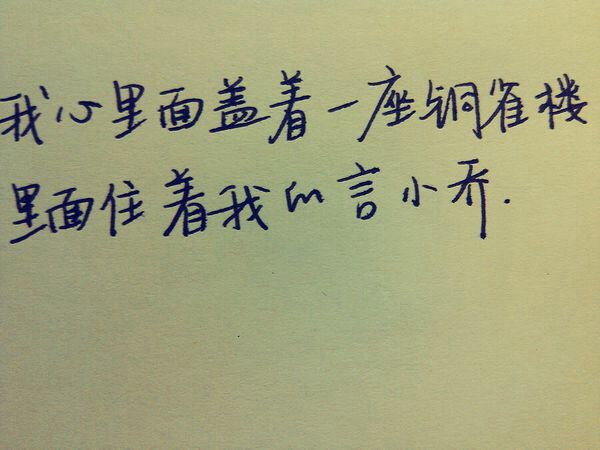 我心里面盖着一座铜雀楼
里面住着我的言小乔.